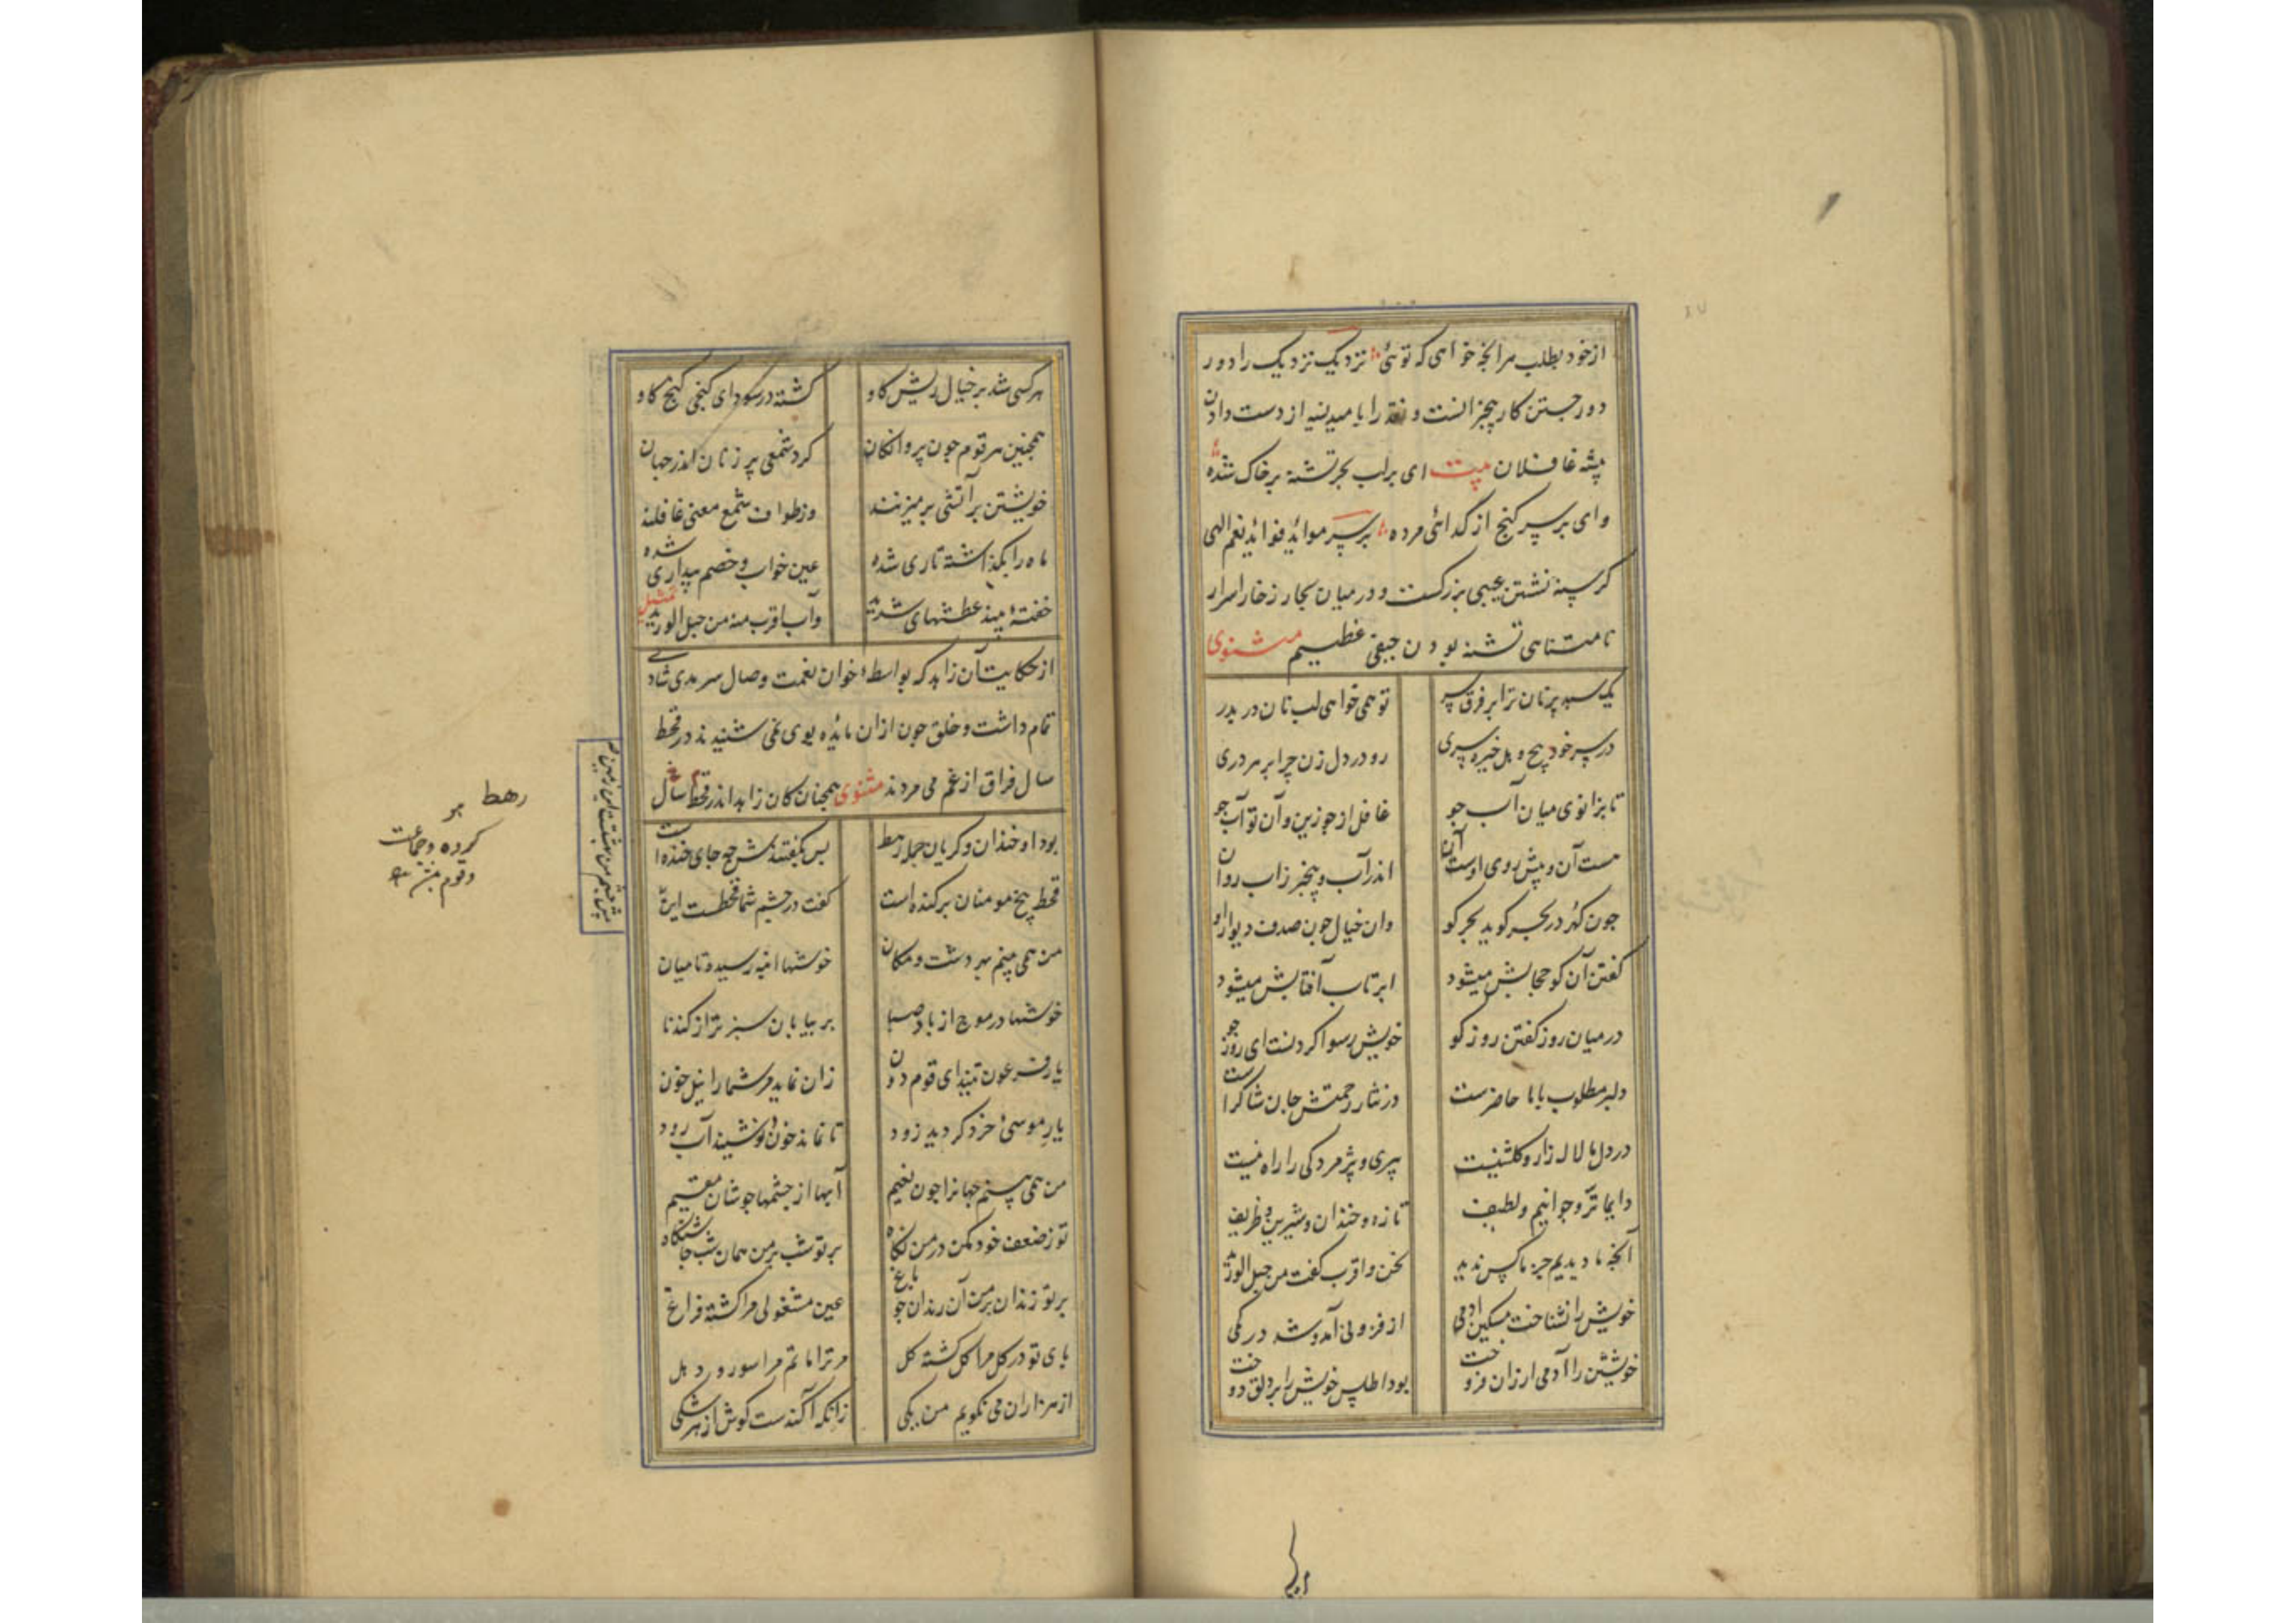 از خود بطلب هر انچه خواهی که توئی نزدیک نزدیک را دور
دور جستن کار بیخبرانست و نقد را با میدنسیه از دست دادن
پیشه غافلان بیت ای بر لب بحر تشنه بر خاک شده
وای بر سر کنج از گدائی مرده بر سر موائد فوائد نعم الهی
گرسنه نشستن عیبی بزرگست و در میان بحار زخار اسرار
نامتناهی تشنه بودن حیفی عظیم مثنوی
یک سبد پر نان ترا بر فرق سر تو همی خواهی لب نان در بدر
در سر خود پیچ و هل خیره سری رو در دل زن چرا بر هر دری
تا بزانوی میان آب جو غافل از خود زین و آن تو آب جو
مست آن و پیش روی اوست آن اندر آب و بیخبر ز اب روان
چون گهر در بحر گوید بحر کو وان خیال چون صدف دیوار او
گفتن آن کو حجابش میشود ابر تاب آفتابش میشود
در میان روز گفتن روز کو خویش رسوا کردنست ای روز جو
دلبر مطلوب با ما حاضرست در نثار رحمتش جان شاکرست
در دل ما لاله زار و گلشنیست پیری و پژمردگی را راه نیست
دایما تر و جوانیم و لطیف تازه و خندان و شیرین و ظریف
آنچه ما دیدیم جز ما کس ندید نحن و اقرب گفت من حبل الورید
خویش را نشناخت مسکین آدمی از فزونی آمد و شد در کمی
خویشتن را آدمی ارزان فروخت بود اطلس خویش را بر دلق دوخت
هر کسی شد بر خیال ریش گاو گشته در سودای گنجی کنج کاو
همچنین هر قوم چون پروانگان گرد شمعی پر زنان اندر جهان
خویشتن بر آتشی بر میزنند وز طواف شمع معنی غافلند
ماه را بگذاشته تاری شده عین خواب و خصم بیداری شده
خفتهٔ بیند عطشهای شدید وآب اقرب منه من حبل الورید تمثیل
از حکایت آن زاهد که بواسطهٔ خوان نعمت وصال سرمدی شادی
تمام داشت و خلق چون از ان مائده بوی نمی شنیدند در قحط
سال فراق از غم می مردند مثنوی همچنان کان زاهد اندر قحط سال
بود او خندان و گریان جمله رهط پس بگفتندش چه جای خنده است
قحط بیخ مومنان بر کنده است گفت در چشم شما قحطست این
من همی بینم بهر دشت و مکان خوشها انبه رسیده تا میان
خوشها در موج از باد صبا بر بیابان سبز تر از گندنا
یار فرعون تنید ای قوم دون زان نماید مر شما را نیل خون
یار موسی خرد گردید زود تا نماند خون و نوشیند آب رود
من همی بینم جهانرا چون نعیم آبها از چشمها جوشان مقیم
تو ز ضعف خود مکن در من نگاه بر تو شب بر من همان شب چاشتگاه
بر تو زندان بر من آن زندان چو باغ عین مشغولی مرا گشته فراغ
پای تو در گل مرا گل گشته گل مر ترا ماتم مرا سور و دهل
از هزاران می نگویم من یکی زانکه آکندست گوش از هر شکی
پیش چشم من بهشتست این زمین
رهط
کرده و جماعت
و قوم